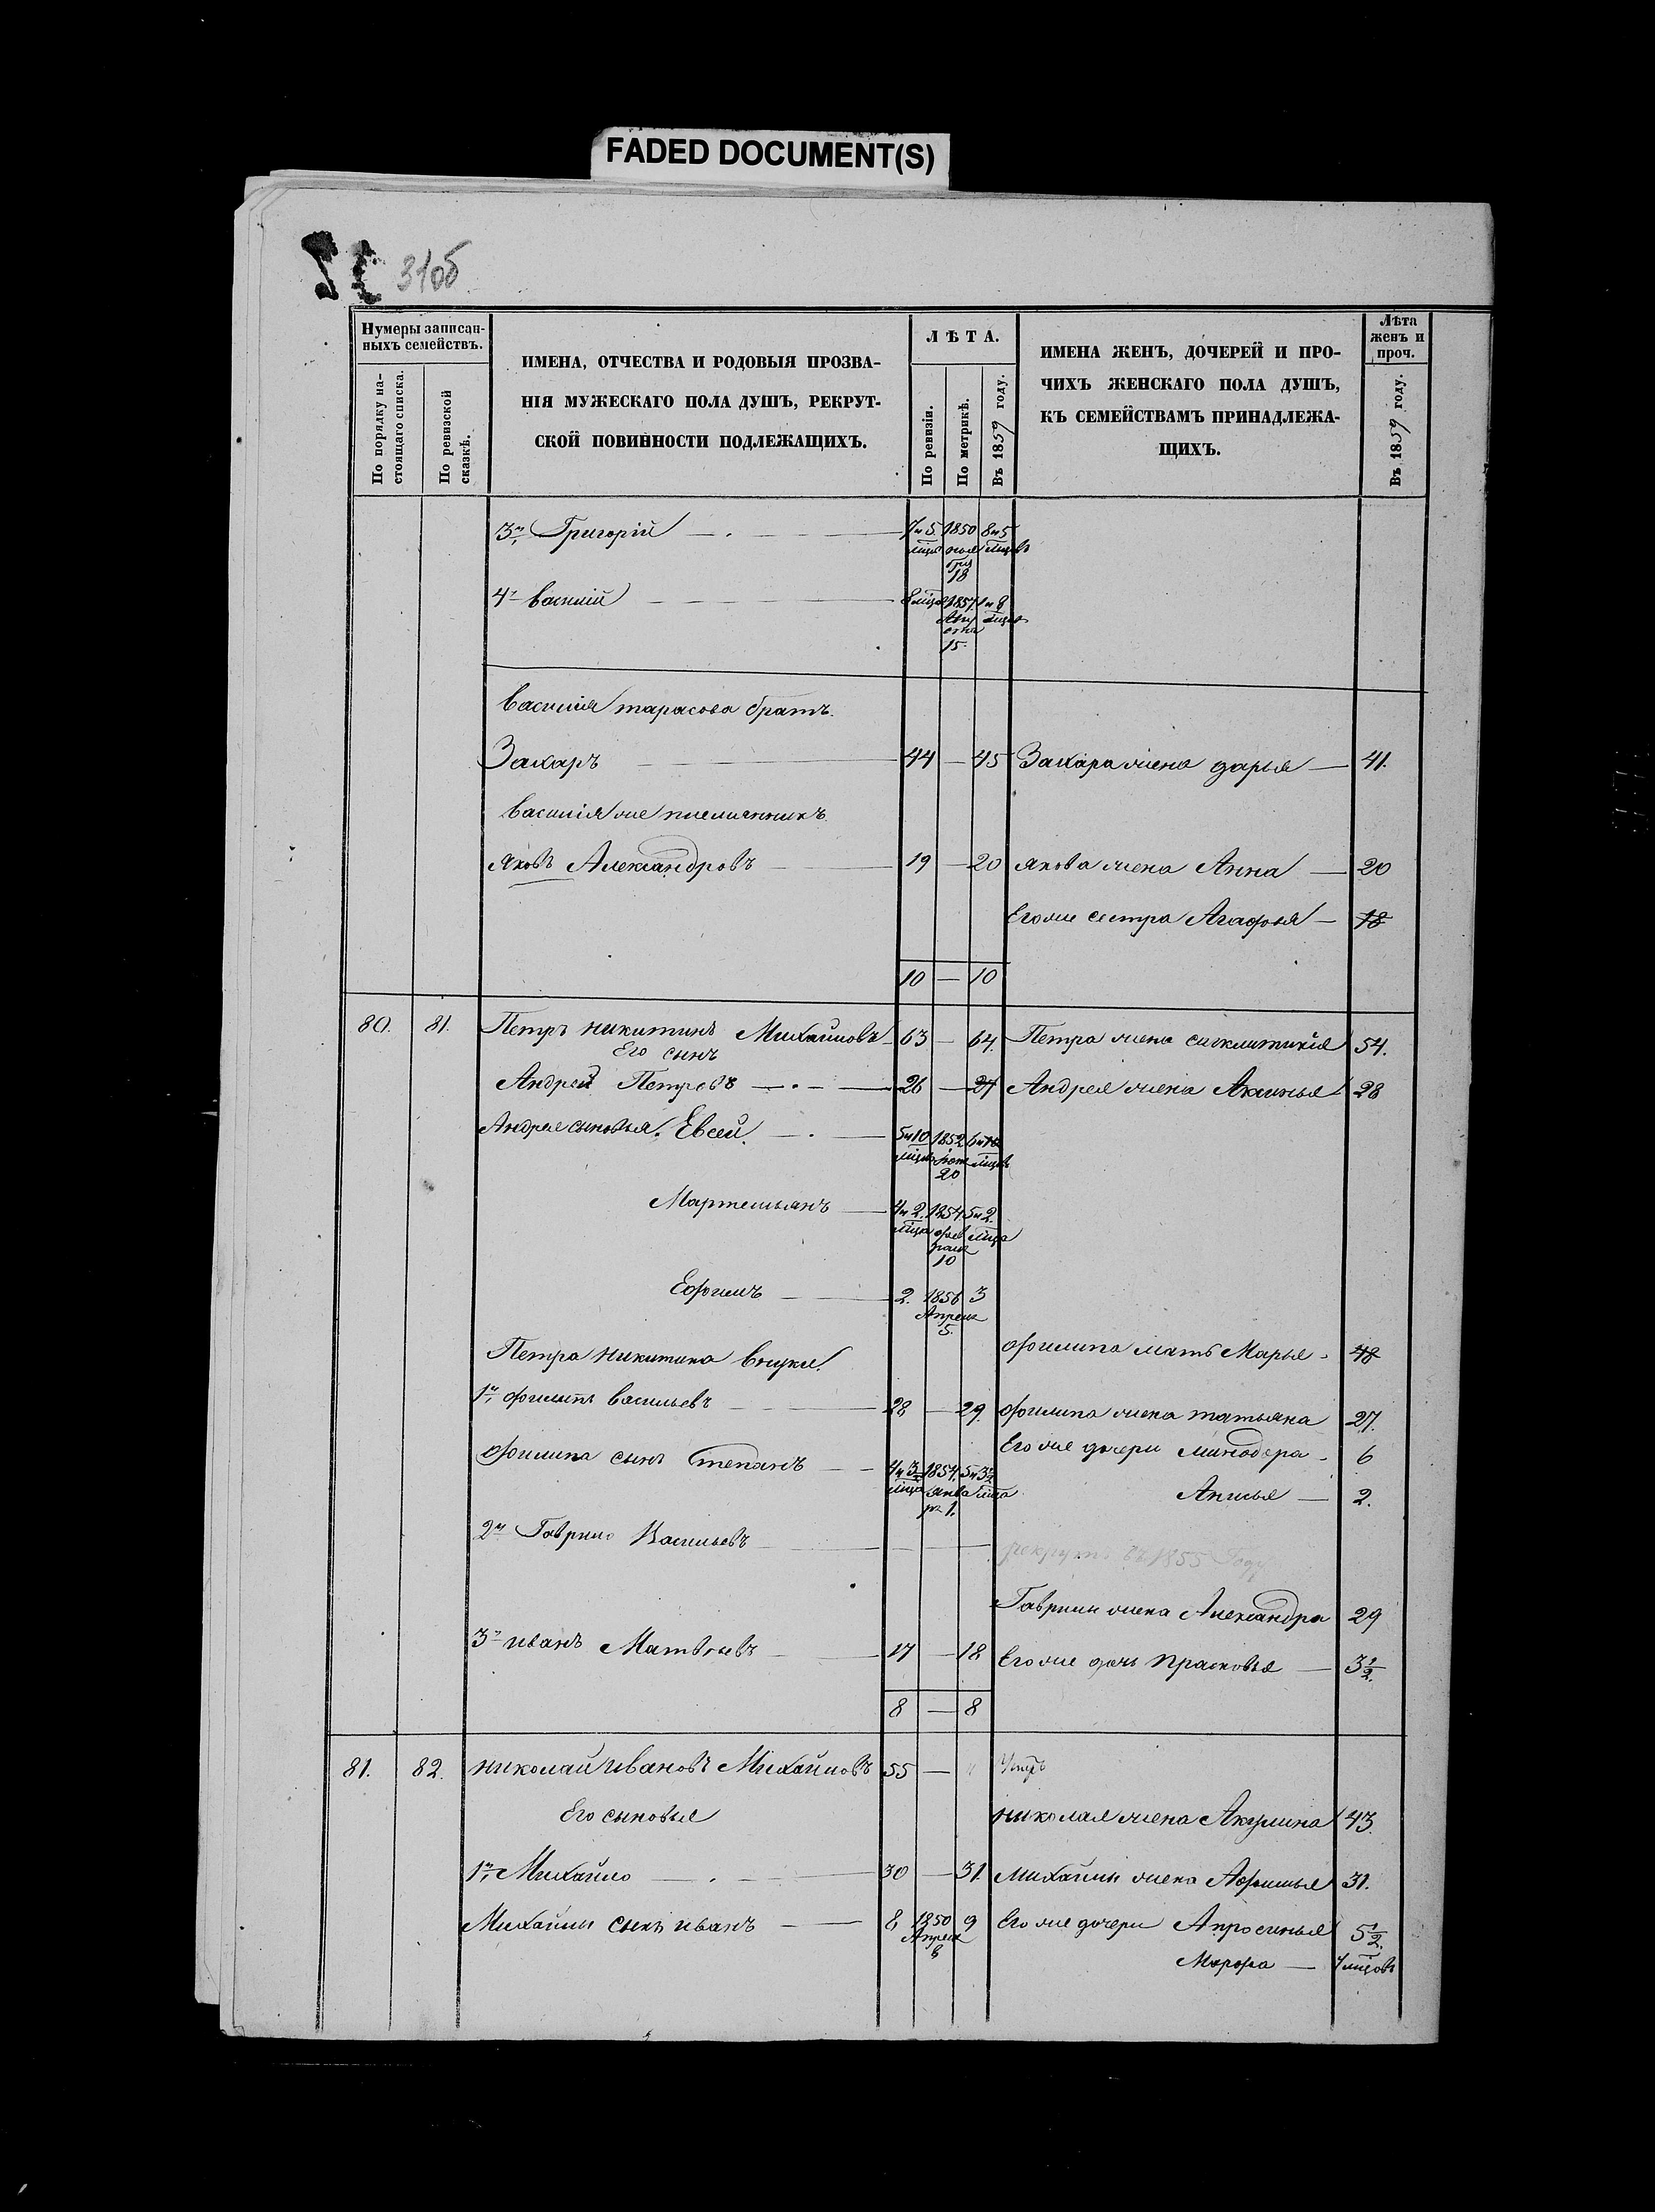 FADED DOCUMENT(S)
310б
Нумеры записан-
ныхъ семействъ.
По порядку на-
стоящаго списка.
По ревизской
сказкѣ.
ИМЕНА, ОТЧЕСТВА И РОДОВЫЯ ПРОЗВА-
НІЯ МУЖЕСКАГО ПОЛА ДУШЪ, РЕКРУТ-
СКОЙ ПОВИННОСТИ ПОДЛЕЖАЩИХЪ.
ЛѢТА.
По ревизіи.
По метрикѣ.
Въ 1859 году.
ИМЕНА ЖЕНЪ, ДОЧЕРЕЙ И ПРО-
ЧИХЪ ЖЕНСКАГО ПОЛА ДУШЪ,
КЪ СЕМЕЙСТВАМЪ ПРИНАДЛЕЖА-
ЩИХЪ.
Лѣта
женъ и
проч.
Въ 1859 году.
3й Григорій 7и5 1850 8и5
мцовъ ноя мцовъ
бря
18
4й василій 8 мцов 1857 1и8
Авгу мцов
ста
15.
Василія тарасова братъ.
Захаръ 44 — 45 Захара жена дарья — 41.
Василія же племянникъ
яковъ Александровъ 19 — 20 якова жена Анна — 20
Его же сестра Агафья — 18
10 — 10
80. 81. Петръ никитинъ Михайловъ 63 — 64. Петра жена сиклитикія 54.
Его сынъ
Андрей Петровъ 26 — 27 Андрея жена Аксинья 28
Андрея сыновья. Евсей. 5и10 1852 6и10
мцов июня мцовъ
20
Мартемьянъ 4и2. 1854 5и2.
мца фев мца
раля
10
Ефимъ 2. 1856 3
Апреля
5.
Петра Никитина внуки.
филипа мать Марья - 48
1й филипъ васильевъ 28 — 29. филипа жена татьяна 27.
филипа сынъ степанъ 4и3 1854. 5и3½
мца янва мца
ря 1.
Его же дочери минодора - 6
Анисья — 2.
2й Гаврило Васильевъ рекрутъ въ 1855 Году
Гаврилы жена Александра 29
3й иванъ Матвѣевъ 17 — 18 Его же дочь прасковья — 3½.
8 — 8
81. 82. николай ивановъ Михайловъ 55 — " Умеръ
Его сыновья николая жена Акулина 43.
1й Михайло 30 — 31. михайлы жена Афимья 31.
Михайлы сынъ иванъ 8 1850 9 Его же дочери Апросинья 5½.
Апреля
8
Марфа — 7 мцовъ